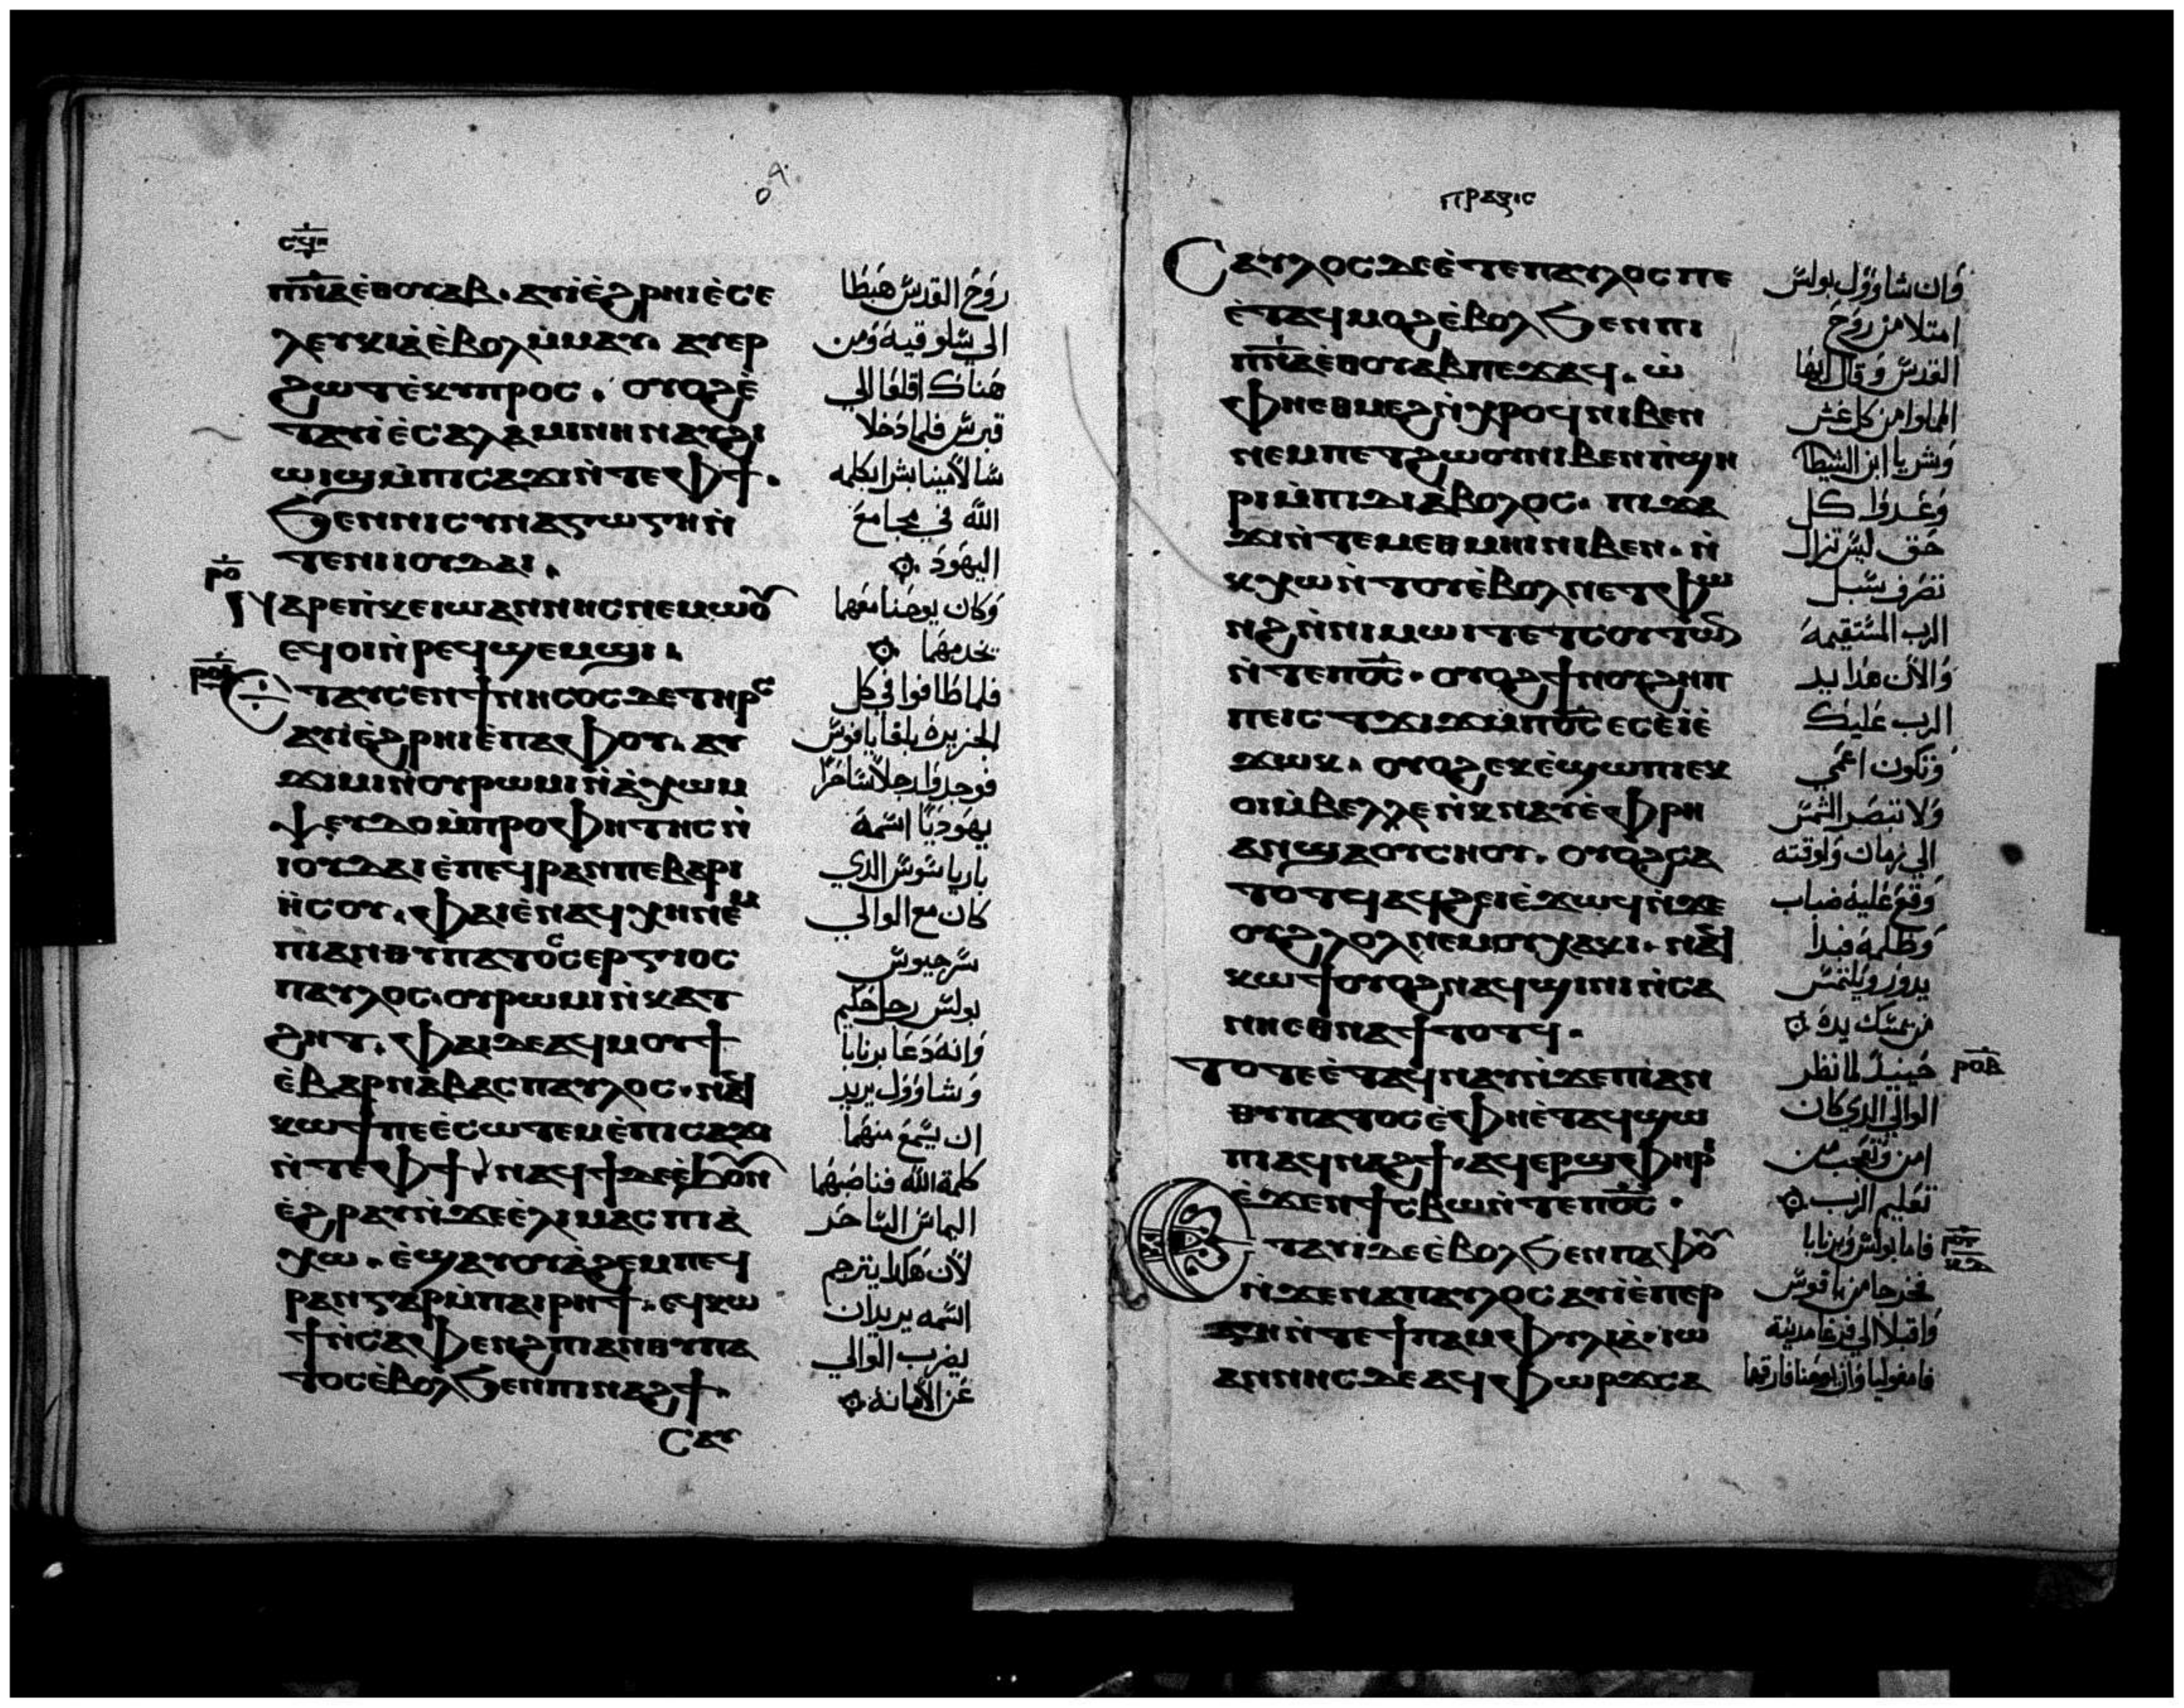 ⲥϥⲏ
ⲡ̅ⲛ̅ⲁ̅ ⲉ̀ⲑⲟⲩⲁⲃ. ⲁⲩⲓ̀ ⲉ̀ϧⲣⲏⲓ ⲉ̀ⲥⲉ
ⲗⲉⲩⲕⲓⲁ̀ ⲉ̀ⲃⲟⲗ ⲙ̀ⲙⲁⲩ. ⲁⲩⲉⲣ
ϩⲱⲧ ⲉ̀ⲕⲩⲡⲣⲟⲥ. ⲟⲩⲟϩ ⲉ̀
ⲧⲁⲩⲓ̀ ⲉ̀ⲥⲁⲗⲁⲙⲓⲛⲏ ⲛⲁⲩϩⲓ
ⲱⲓϣ ⲙ̀ⲡⲓⲥⲁϫⲓ ⲛ̀ⲧⲉ ⲫϯ.
ϧⲉⲛ ⲛⲓⲥⲩⲛⲁⲅⲱⲅⲏ ⲛ̀
ⲧⲉ ⲛⲓⲓⲟⲩⲇⲁⲓ.
ⲣⲟ
ⲛⲁⲣⲉ ⲡ̀ⲕⲉⲓⲱⲁⲛⲛⲏⲥ ⲛⲉⲙⲱⲟⲩ
ⲉϥⲟⲓ ⲛ̀ⲣⲉϥϣⲉⲙϣⲓ.
ⲣⲟⲁ
ⲉⲧⲁⲩⲥⲉⲛ ϯⲛⲏⲥⲟⲥ ⲇⲉ ⲧⲏⲣⲥ
ⲁⲩⲓ̀ ⲉ̀ϧⲣⲏⲓ ⲉ̀ⲡⲁⲫⲟⲩ. ⲁⲩ
ϫⲓⲙⲓ ⲛ̀ⲟⲩⲣⲱⲙⲓ ⲛ̀ⲁ̀ⲭⲱ ⲙ
ⲯⲉⲩⲇⲟⲙ̀ⲡⲣⲟⲫⲏⲧⲏⲥ ⲛ̀
ⲓⲟⲩⲇⲁⲓ ⲉ̀ⲡⲉϥⲣⲁⲛ ⲡⲉ ⲃⲁⲣⲓ
ⲏ̀ⲥⲟⲩ. ⲫⲁⲓ ⲉ̀ⲛⲁϥⲭⲏ ⲛⲉⲙ
ⲡⲓⲁⲛⲑⲩⲡⲁⲧⲟⲥ ⲥⲉⲣⲅⲓⲟⲥ
ⲡⲁⲩⲗⲟⲥ. ⲟⲩⲣⲱⲙⲓ ⲛ̀ⲕⲁⲧ
ϩⲏⲧ. ⲫⲁⲓ ⲇⲉ ⲁϥⲙⲟⲩϯ
ⲉ̀ⲃⲁⲣⲛⲁⲃⲁⲥ ⲡⲁⲩⲗⲟⲥ. ⲛⲁϥ
ⲕⲱϯ ⲡⲉ ⲉ̀ⲥⲱⲧⲉⲙ ⲉ̀ⲡⲓⲥⲁϫⲓ
ⲛ̀ⲧⲉ ⲫϯ. ⲛⲁϥϯ ⲇⲉ ⲉ̀ϧⲟⲩⲛ
ⲉ̀ϩⲣⲁⲩ ⲛ̀ϫⲉ ⲉ̀ⲗⲓⲙⲁⲥ ⲡⲓⲁ̀
ⲭⲱ. ⲉ̀ϣⲁⲩⲟⲩⲁ̀ϩⲉⲙ ⲡⲉϥ
ⲣⲁⲛ ⲅⲁⲣ ⲙ̀ⲡⲁⲓⲣⲏϯ. ⲉϥⲕⲱ
ϯ ⲛ̀ⲥⲁ ⲫⲉⲛϩ ⲡⲓⲁⲛⲑⲩⲡⲁ
ⲧⲟⲥ ⲉ̀ⲃⲟⲗϧⲉⲛ ⲡⲓⲛⲁϩϯ.
ⲥⲁⲩ
روح القدس هبطا
الي سلوقيه ومن
هناك اقلعا الي
قبرس فلما دخلا
سالامينا بشرا بكلمه
الله في مجامع
اليهود
وكان يوحنا معهما
يخدمهما
فلما طافوا في كل
الجزيره بلغا يافوس
فوجدوا رجلا ساحرا
يهوديا اسمه
بارياشوش الدي
كان مع الوالي
سرجيوس
بولس رجل حكيم
وانه دعا برنابا
وشاوول يريد
ان يسمع منهما
كلمة الله فناصبهما
اليماس الساحر
لان هكدا يترجم
اسمه يريد ان
يضرب الوالي
عن الامانه
ⲡⲣⲁⲝⲓⲥ
ⲥⲁⲩⲗⲟⲥ ⲇⲉ ⲉ̀ⲧⲉ ⲡⲁⲩⲗⲟⲥ ⲡⲉ
ⲉ̀ⲧⲁϥⲙⲟϩ ⲉ̀ⲃⲟⲗϧⲉⲛ ⲡⲓ
ⲡ̅ⲛ̅ⲁ̅ ⲉ̀ⲑⲟⲩⲁⲃ ⲡⲉϫⲁϥ. ⲱ̀
ⲫⲏⲉⲑⲙⲉϩ ⲛ̀ⲭⲣⲟϥ ⲛⲓⲃⲉⲛ
ⲛⲉⲙ ⲡⲉⲧϩⲱⲟⲩ ⲛⲓⲃⲉⲛ ⲡ̀ϣⲏ
ⲣⲓ ⲙ̀ⲡⲓⲇⲓⲁ̀ⲃⲟⲗⲟⲥ. ⲡⲓϫⲁ
ϫⲓ ⲛ̀ⲧⲉ ⲙⲉⲑⲙⲏⲓ ⲛⲓⲃⲉⲛ. ⲛ̀
ⲕⲭⲱ ⲛ̀ⲧⲟⲧⲕ ⲉ̀ⲃⲟⲗ ⲛⲉⲧⲫⲱ
ⲛϩ ⲛ̀ⲛⲓⲙⲱⲓⲧ ⲉⲧⲥⲟⲩⲧⲱⲛ
ⲛ̀ⲧⲉ ⲡ̅ⲟ̅ⲥ̅. ⲟⲩⲟϩ ϯⲛⲟⲩ ϩⲏⲡ
ⲡⲉ ⲓⲥ ⲧϫⲓϫ ⲙ̀ⲡ̅ⲟ̅ⲥ̅ ⲉⲥⲉ̀ⲓ̀ ⲉ̀
ϫⲱⲕ. ⲟⲩⲟϩ ⲉⲕⲉ̀ϣⲱⲡⲓ ⲉⲕ
ⲟⲓ ⲙ̀ⲃⲉⲗⲗⲉ ⲛ̀ⲕⲛⲁⲩ ⲉ̀ⲫⲣⲏ
ⲁⲛ ϣⲁ ⲟⲩⲥⲏⲟⲩ. ⲟⲩⲟϩ ⲥⲁ
ⲧⲟⲧϥ ⲁϥϩⲉⲓ ⲉ̀ϫⲱϥ ⲛ̀ϫⲉ
ⲟⲩϩⲗⲟⲗ ⲛⲉⲙ ⲟⲩⲭⲁⲕⲓ. ⲛⲁϥ
ⲕⲱϯ ⲟⲩⲟϩ ⲛⲁϥϣⲓⲛⲓ ⲛ̀ⲥⲁ
ⲛⲏⲉⲑⲛⲁϯⲧⲟⲧϥ.
ⲧⲟⲧⲉ ⲉ̀ⲧⲁϥⲛⲁⲩ ⲛ̀ϫⲉ ⲡⲓⲁⲛ
ⲑⲩⲡⲁⲧⲟⲥ ⲉ̀ⲫⲏⲉ̀ⲧⲁϥϣⲱ
ⲡⲓ ⲁϥⲛⲁϩϯ. ⲁϥⲉⲣϣⲫⲏⲣⲓ
ⲉ̀ϫⲉⲛ ϯⲥⲃⲱ ⲛ̀ⲧⲉ ⲡ̅ⲟ̅ⲥ̅.
ⲉⲧⲁⲩⲓ̀ ⲇⲉ ⲉ̀ⲃⲟⲗϧⲉⲛ ⲡⲁⲫⲟⲩ
ⲛ̀ϫⲉ ⲛⲁ ⲡⲁⲩⲗⲟⲥ ⲁⲩⲓ̀ ⲉ̀ⲡⲉⲣ
ⲅⲏ ⲛ̀ⲧⲉ ϯⲡⲁⲙⲫⲩⲗⲓⲁ̀. ⲓⲱ
ⲁⲛⲛⲏⲥ ⲇⲉ ⲁϥⲫⲱⲣϫ ⲥⲁ
وان شاوول بولس
امتلا من روح
القدس وقال ايها
المملوا من كل غش
وشر يا ابن الشيطا
وعدوا كل
حق ليس تزال
تصرف سبل
الرب المستقيمه
والان هدا يد
الرب عليك
وتكون اعمي
ولا تبصر الشمس
الي زمان ولوقته
وقع عليه ضباب
وظلمه فبدا
يدور ويلتمس
من يمسك يده
حينيد لما نظر
ⲣⲟⲃ
الوالي الدي كان
امن وتعجب من
تعليم الرب
فاما بولس وبرنابا
ⲣⲟⲅ
ⲕⲇ
فخرجا من بافوس
واقبلا الي فرغا مدينة
فامفوليا وان يوحنا فارقهما